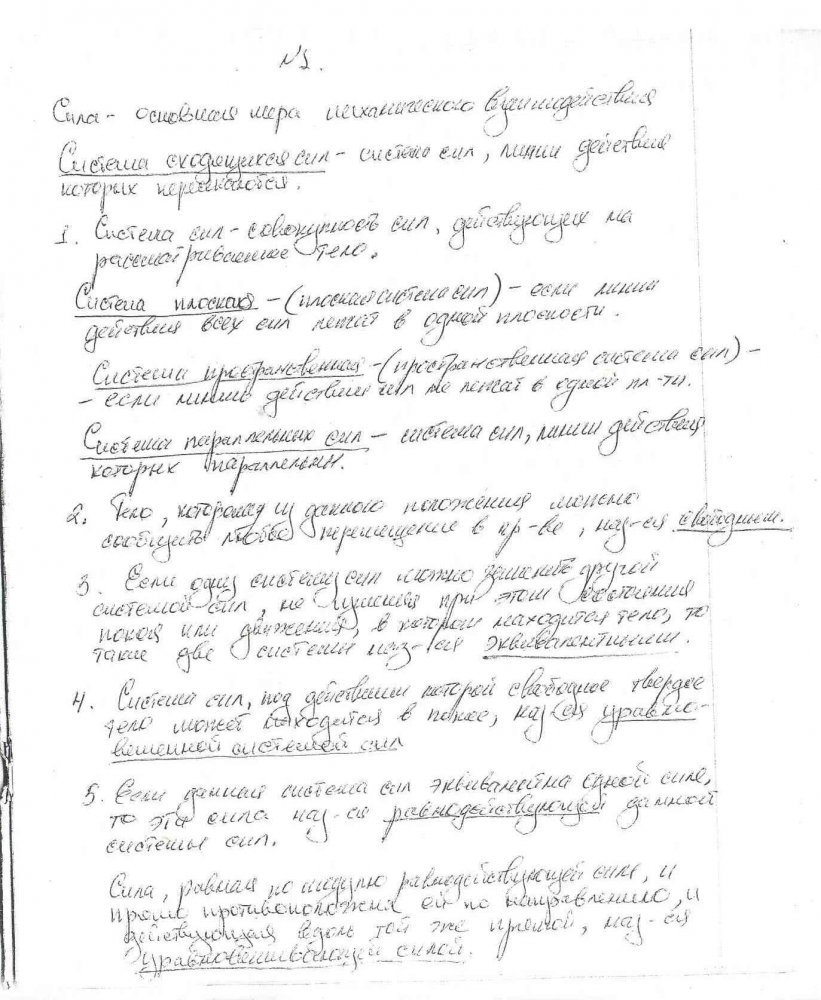 N 1.
Сила - основная мера механического взаимодействия
Система сходящихся сил - система сил, линии действия
которых пересекаются.
1. Система сил - совокупность сил, действующих на
рассматриваемое тело.
Система плоская - (плоская система сил) - если линии
действия всех сил лежат в одной плоскости.
Система пространственная - (пространственная система сил) -
- если линии действия сил не лежат в одной пл-ти.
Система параллельных сил - система сил, линии действия
которых параллельны.
2. Тело, которому из данного положения можно
сообщить любое перемещение в пр-ве, наз-ся свободным.
3. Если одну систему сил можно заменить другой
системой сил, не изменяя при этом состояния
покоя или движения, в котором находится тело, то
такие две системы наз-ся эквивалентными.
4. Система сил, под действием которой свободное твердое
тело может находится в покое, наз-ся уравно-
вешенной системой сил
5. Если данная система сил эквивалентна одной силе,
то эта сила наз-ся равнодействующей данной
системы сил.
Сила, равная по модулю равнодействующей силе, и
прямо противоположна ей по направлению, и
действующая вдоль той же прямой, наз-ся
уравновешивающей силой.